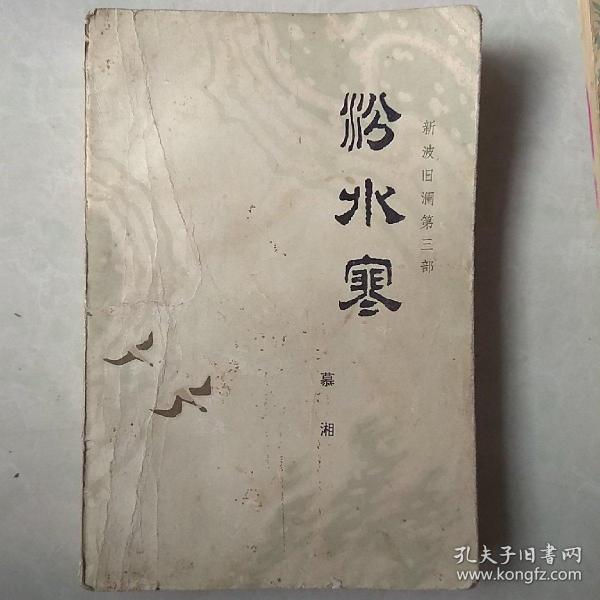 新波旧澜第三部
汾水寒
慕湘
孔夫子旧書网
www.kongfz.com